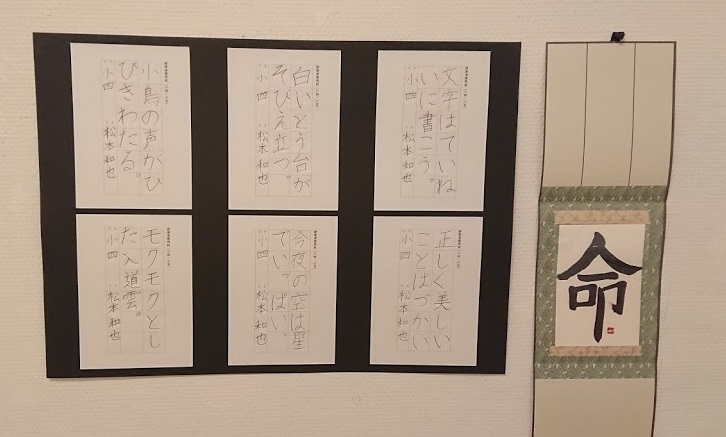 文字はていね
いに書こう。
小四 松本和也
白いとう台が
そびえ立つ。
小四 松本和也
小鳥の声がひ
びきわたる。
小四 松本和也
正しく美しい
ことばづかい
小四 松本和也
今夜の空は星
でいっぱい。
小四 松本和也
モクモクとし
た入道雲。
小四 松本和也
命